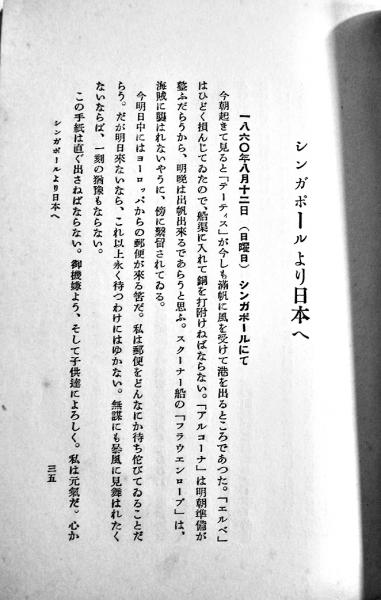 シンガポールより日本へ
一八六〇年八月十二日（日曜日）シンガポールにて
今朝起きて見ると「テーティス」が今しも滿帆に風を受けて港を出るところであつた。「エルベ」
はひどく損んじてゐたので、船渠に入れて銅を打附けねばならない。「アルコーナ」は明朝準備が
整ふだらうから、明晩は出帆出來るであらうと思ふ。スクーナー船の「フラウエンローブ」は、
海賊に襲はれないやうに、傍に繫留されてゐる。
今明日中にはヨーロッパからの郵便が來る筈だ。私は郵便をどんなにか待ち佗びてゐることだ
らう。だが明日來ないなら、これ以上永く待つわけにはゆかない。無謀にも暴風に見舞はれたく
ないならば、一刻の猶豫もならない。
この手紙は直ぐ出さねばならない。御機嫌よう、そして子供達によろしく。私は元氣だ。心か
シンガポールより日本へ
三五